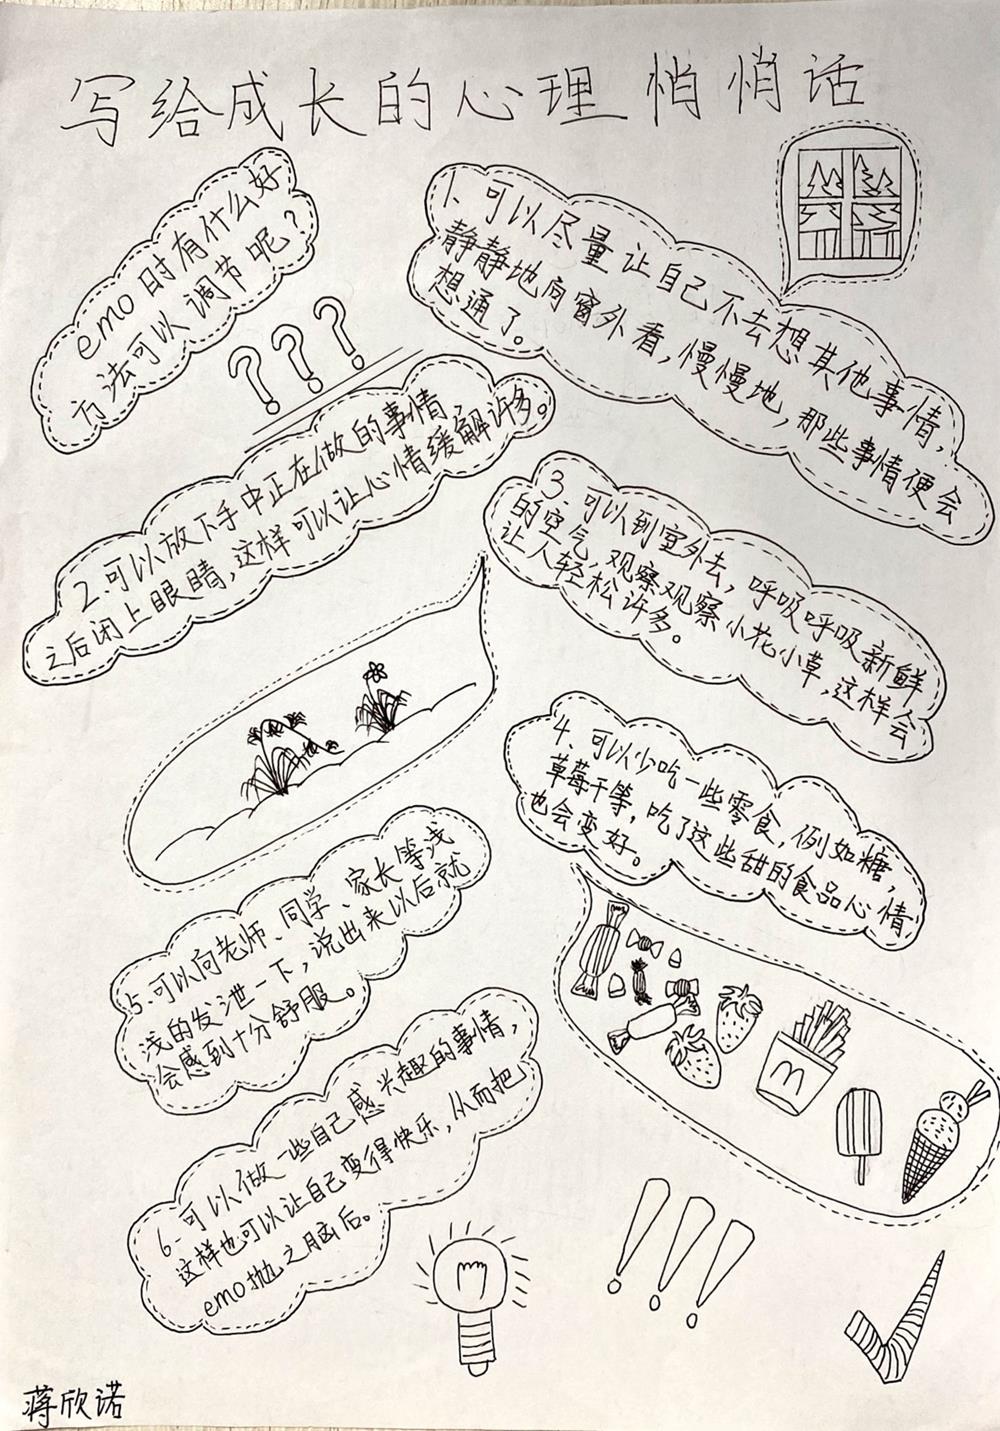 写给成长的心理悄悄话
emo时有什么好
方法可以调节呢?
???
1.可以尽量让自己不去想其他事情,
静静地向窗外看,慢慢地,那些事情便会
想通了。
2.可以放下手中正在做的事情
之后闭上眼睛,这样可以让心情缓解许多。
3.可以到室外去,呼吸呼吸新鲜
的空气,观察观察小花小草,这样会
让人轻松许多。
4、可以少吃一些零食,例如糖,
草莓干等,吃了这些甜的食品心情,
也会变好。
5.可以向老师、同学、家长等浅
浅的发泄一下,说出来以后就
会感到十分舒服。
6.可以做一些自己感兴趣的事情,
这样也可以让自己变得快乐,从而把
emo抛之脑后。
M
!!!
蒋欣诺